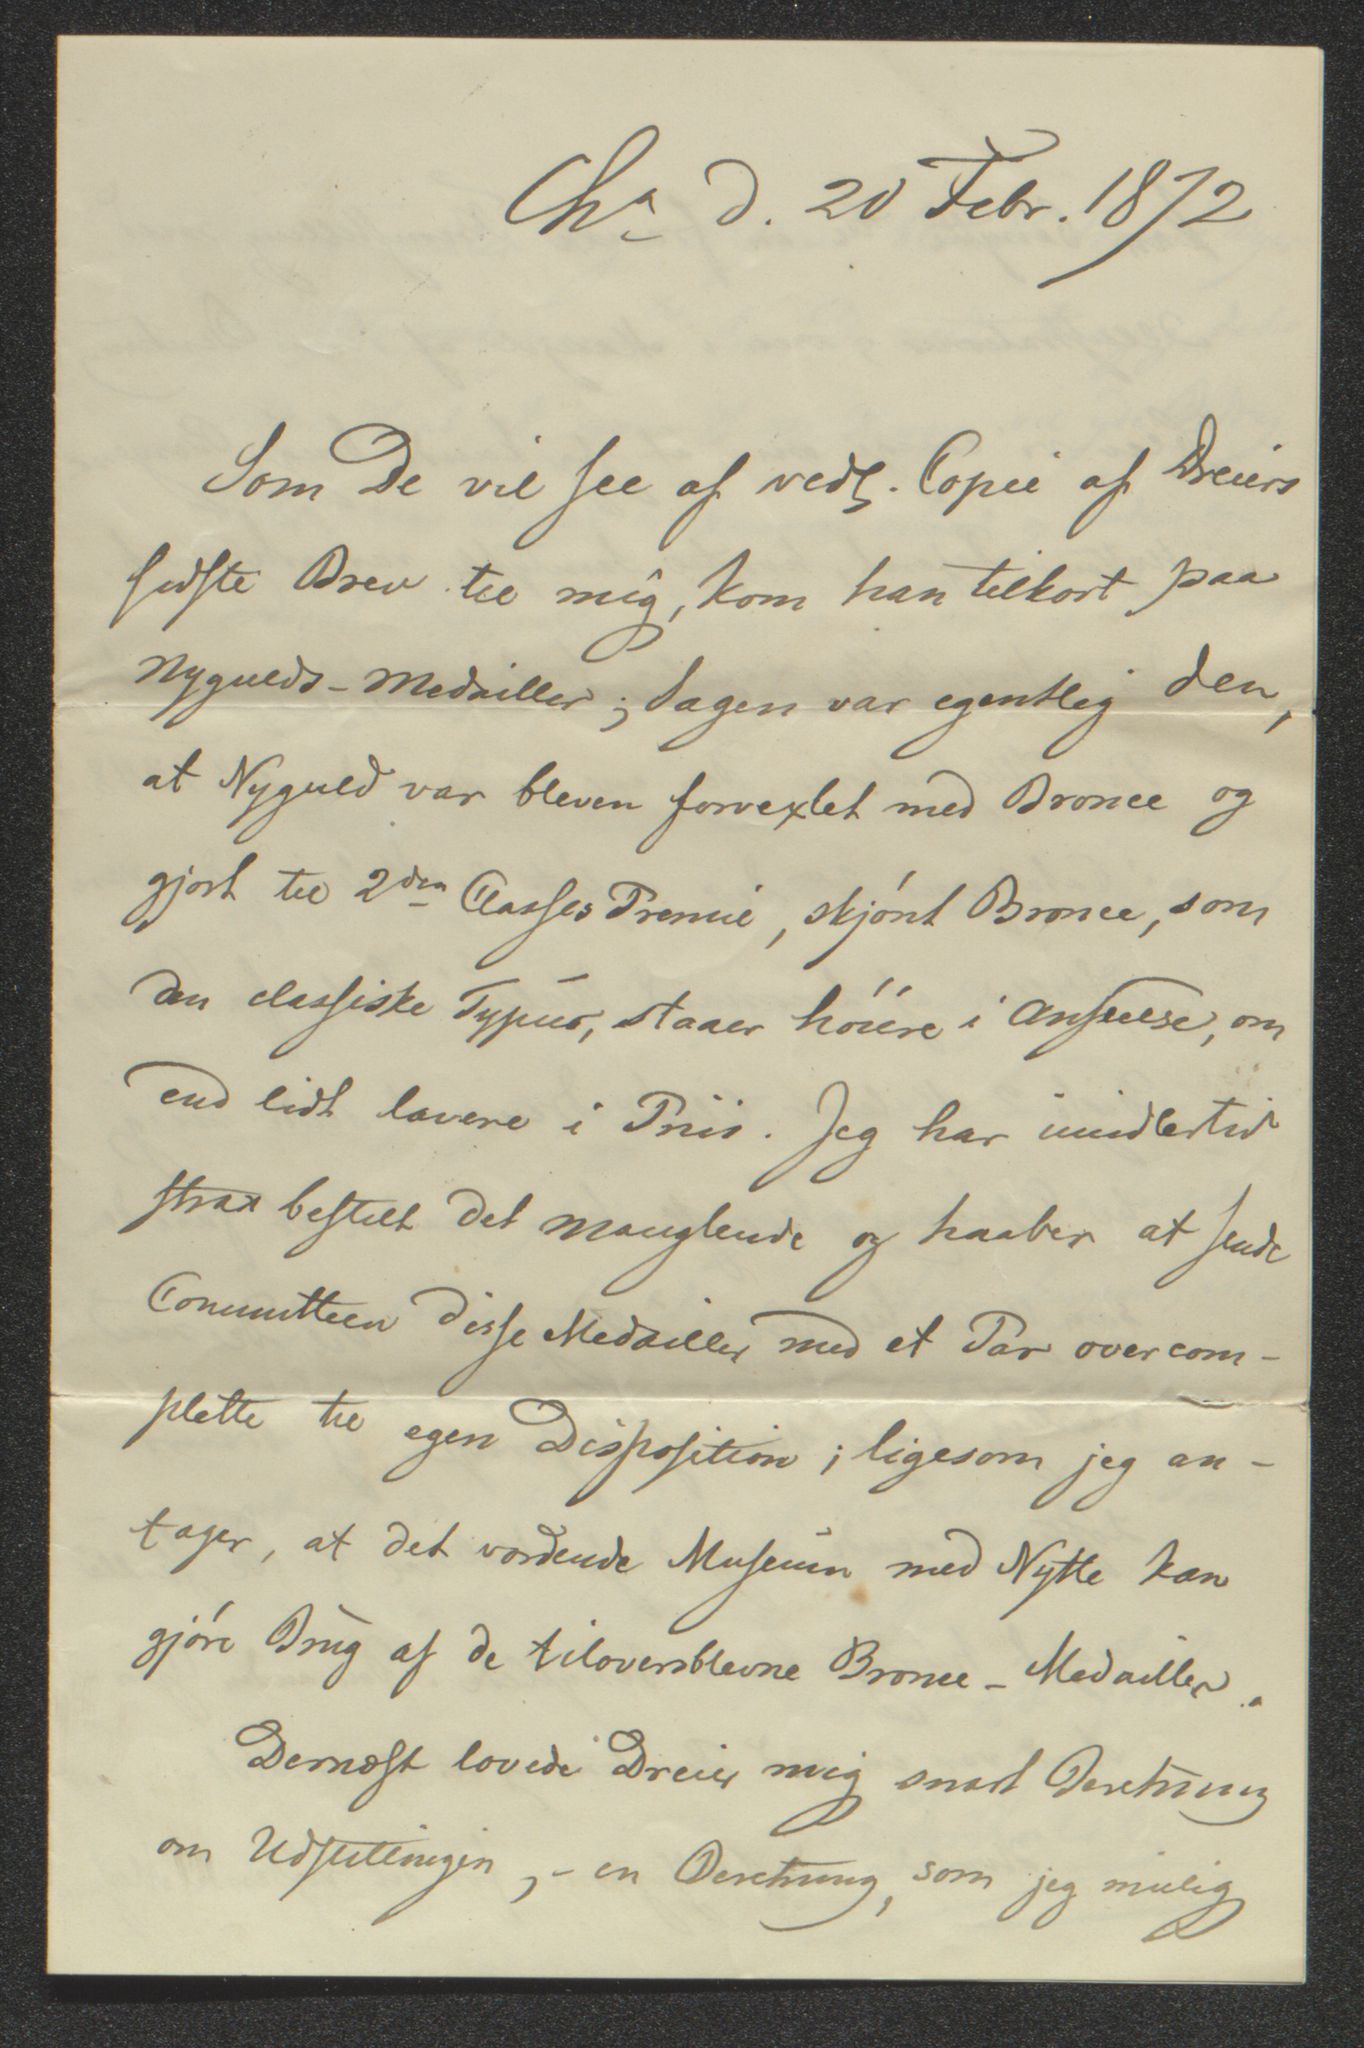 Cha d. 20 Febr. 1872
Som De vil see af vedl. Copie af Dreiers
sidste Brev til mig, kom han tilkort paa
Nygulds-Medailler; Sagen var egentlig den,
at Nyguld var bleven forvexlet med Bronce og
gjort til 2den Classes Premie, skjönt Bronce, som
den classiske Typus, staaer höiere i Anseelse, om
end lidt lavere i Priis. Jeg har imidlertid
strax bestilt det manglende og haaber at sende
Committeen disse Medailler med et Par overcom-
plette til egen Disposition; ligesom jeg an-
tager, at det vordende Museum med Nytte kan
gjöre Brug af de tiloversblevne Bronce-Medailler.
Dernæst lovede Dreier mig snart Beretning
om Udstillingen, - en Beretning, som jeg mulig